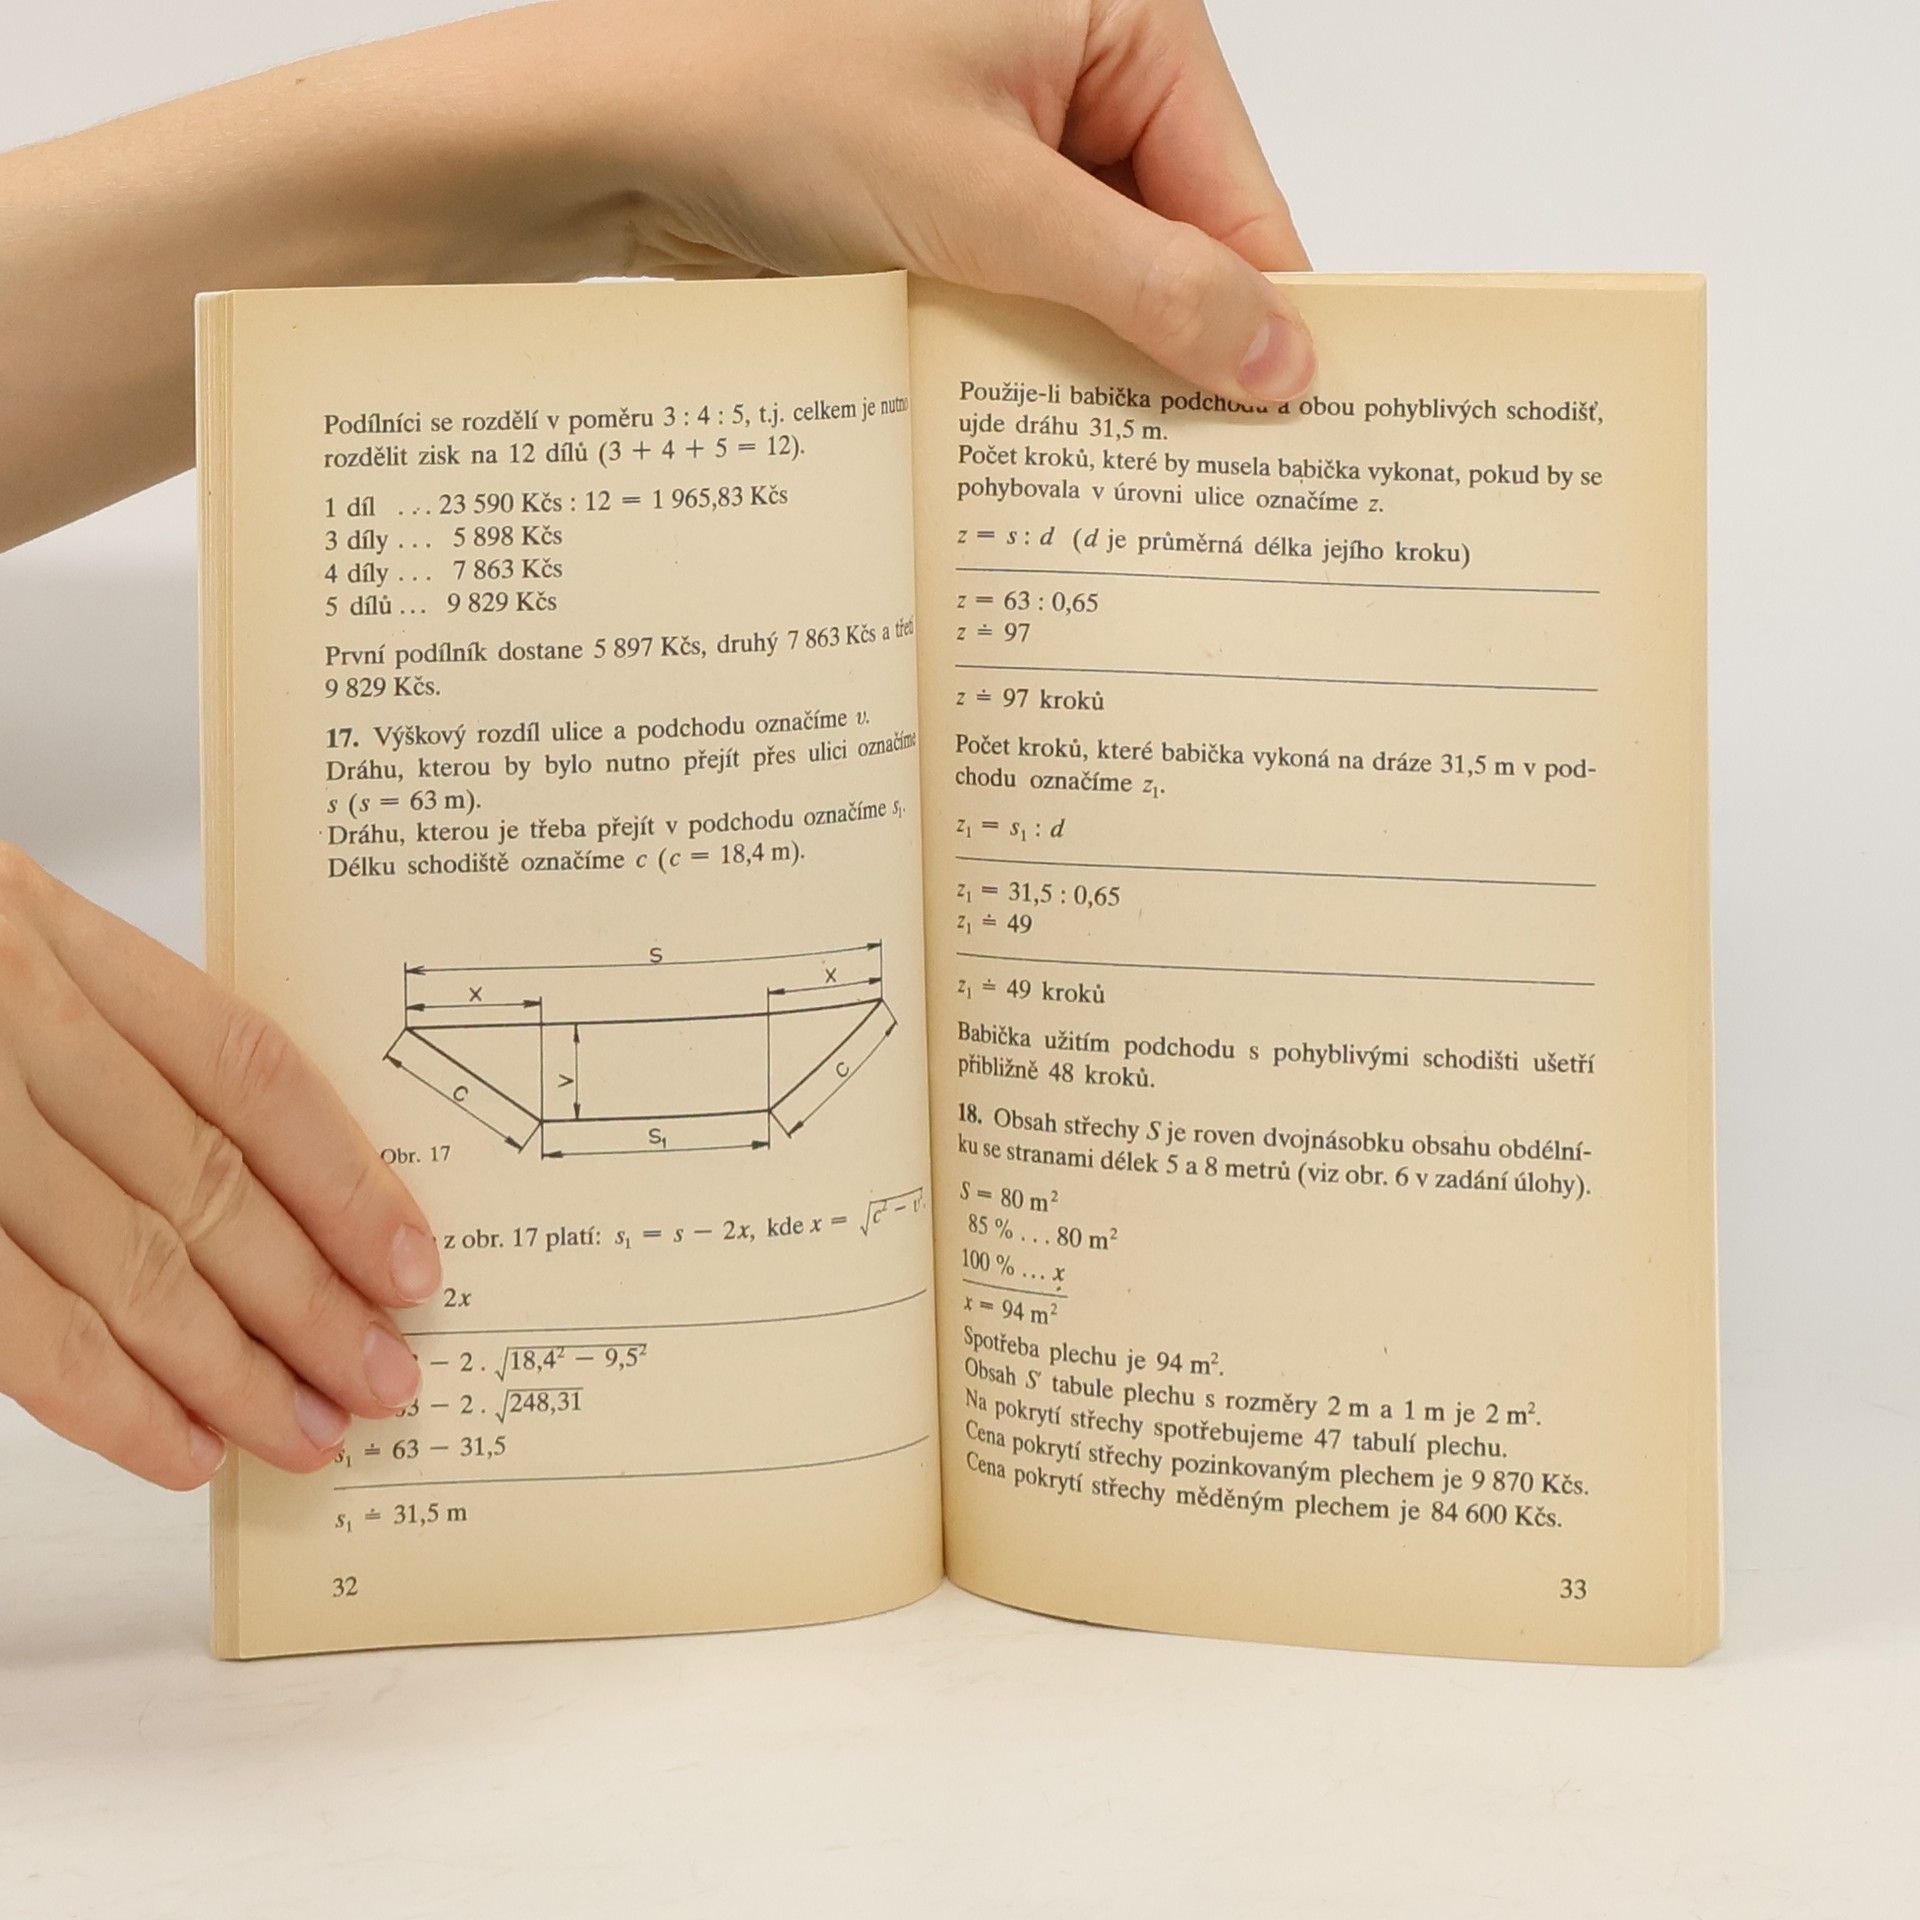 Podílníci se rozdělí v poměru 3 : 4 : 5, t.j. celkem je nutno
rozdělit zisk na 12 dílů (3 + 4 + 5 = 12).
1 díl ... 23 590 Kčs : 12 = 1 965,83 Kčs
3 díly ... 5 898 Kčs
4 díly ... 7 863 Kčs
5 dílů ... 9 829 Kčs
První podílník dostane 5 897 Kčs, druhý 7 863 Kčs a třetí
9 829 Kčs.
17. Výškový rozdíl ulice a podchodu označíme v.
Dráhu, kterou by bylo nutno přejít přes ulici označíme
s (s = 63 m).
Dráhu, kterou je třeba přejít v podchodu označíme s₁.
Délku schodiště označíme c (c = 18,4 m).
s
x
x
v
c
c
s₁
Obr. 17
z obr. 17 platí: s₁ = s − 2x, kde x = √c² − v².
2x
− 2 . √18,4² − 9,5²
− 2 . √248,31
s₁ ≐ 63 − 31,5
s₁ ≐ 31,5 m
32
Použije-li babička podchodu a obou pohyblivých schodišť,
ujde dráhu 31,5 m.
Počet kroků, které by musela babička vykonat, pokud by se
pohybovala v úrovni ulice označíme z.
z = s : d (d je průměrná délka jejího kroku)
z = 63 : 0,65
z ≐ 97
z ≐ 97 kroků
Počet kroků, které babička vykoná na dráze 31,5 m v pod-
chodu označíme z₁.
z₁ = s₁ : d
z₁ = 31,5 : 0,65
z₁ ≐ 49
z₁ ≐ 49 kroků
Babička užitím podchodu s pohyblivými schodišti ušetří
přibližně 48 kroků.
18. Obsah střechy S je roven dvojnásobku obsahu obdélní-
ku se stranami délek 5 a 8 metrů (viz obr. 6 v zadání úlohy).
S = 80 m²
85 % ... 80 m²
100 % ... x
x = 94 m²
Spotřeba plechu je 94 m².
Obsah S′ tabule plechu s rozměry 2 m a 1 m je 2 m².
Na pokrytí střechy spotřebujeme 47 tabulí plechu.
Cena pokrytí střechy pozinkovaným plechem je 9 870 Kčs.
Cena pokrytí střechy měděným plechem je 84 600 Kčs.
33